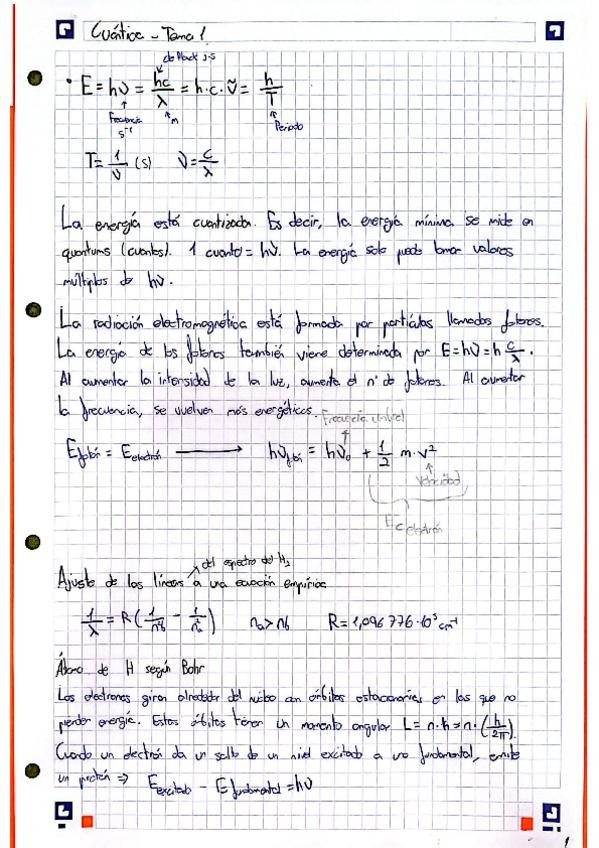 Cuántica - Tema 1
cte Planck J·s
• E = hν = hc/λ = h·c·ν̃ = h/T
Frecuencia s⁻¹
m
Periodo
T = 1/ν (s) ν = c/λ
La energía está cuantizada. Es decir, la energía mínima se mide en
quantums (cuantos). 1 cuanto = hν. La energía solo puede tomar valores
múltiplos de hν.
La radiación electromagnética está formada por partículas llamadas fotones.
La energía de los fotones también viene determinada por E = hν = h c/λ.
Al aumentar la intensidad de la luz, aumenta el nº de fotones. Al aumentar
la frecuencia, se vuelven más energéticos.
Frecuencia umbral
Efotón = Eelectrón ⟶ hνfotón = hν₀ + 1/2 m·v²
Velocidad
Ec electrón
del espectro del H₂
Ajuste de las líneas a una ecuación empírica
1/λ = R(1/n²b - 1/n²a) na > nb R = 1,096 776·10⁵ cm⁻¹
Átomo de H según Bohr
Los electrones giran alrededor del núcleo con órbitas estacionarias en las que no
pierden energía. Estas órbitas tienen un momento angular L = n·ħ = n·(h/2π).
Cuando un electrón da un salto de un nivel excitado a uno fundamental, emite
un protón ⇒ Eexcitado - Efundamental = hν
1